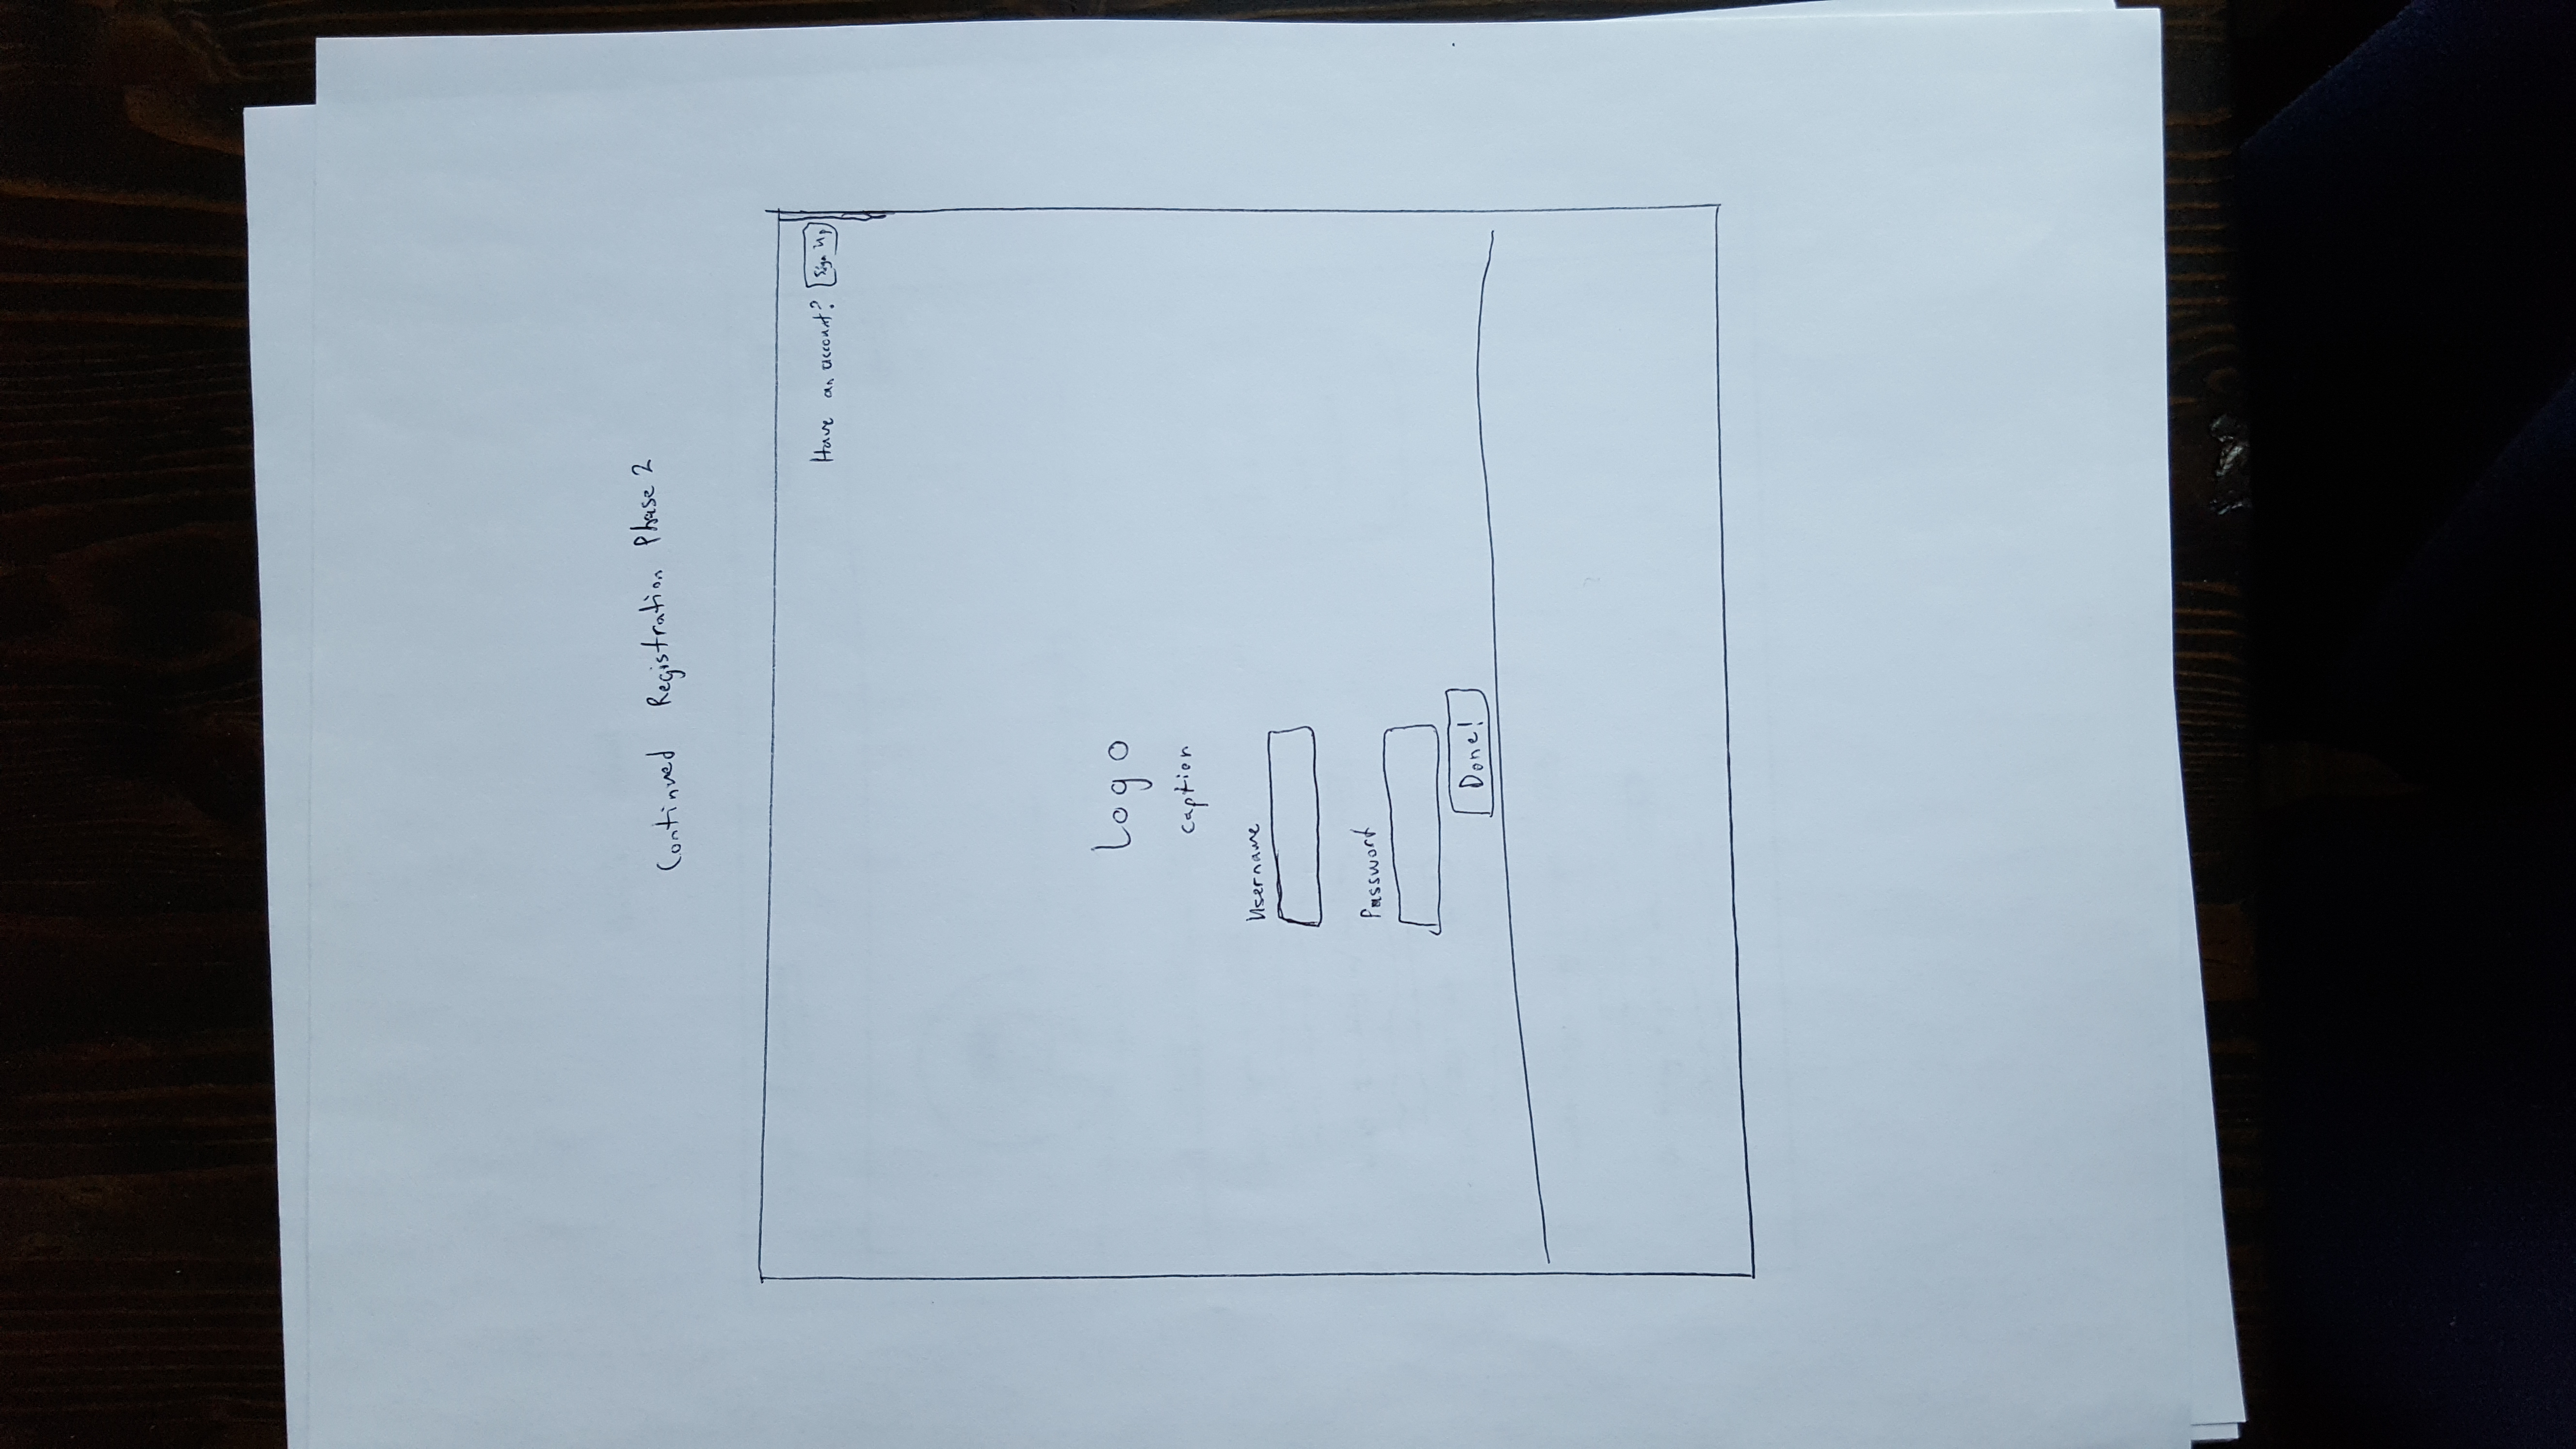 Continued Registration Phase 2
Have an account? Sign Up
Logo
caption
Username
Passwort
Done!